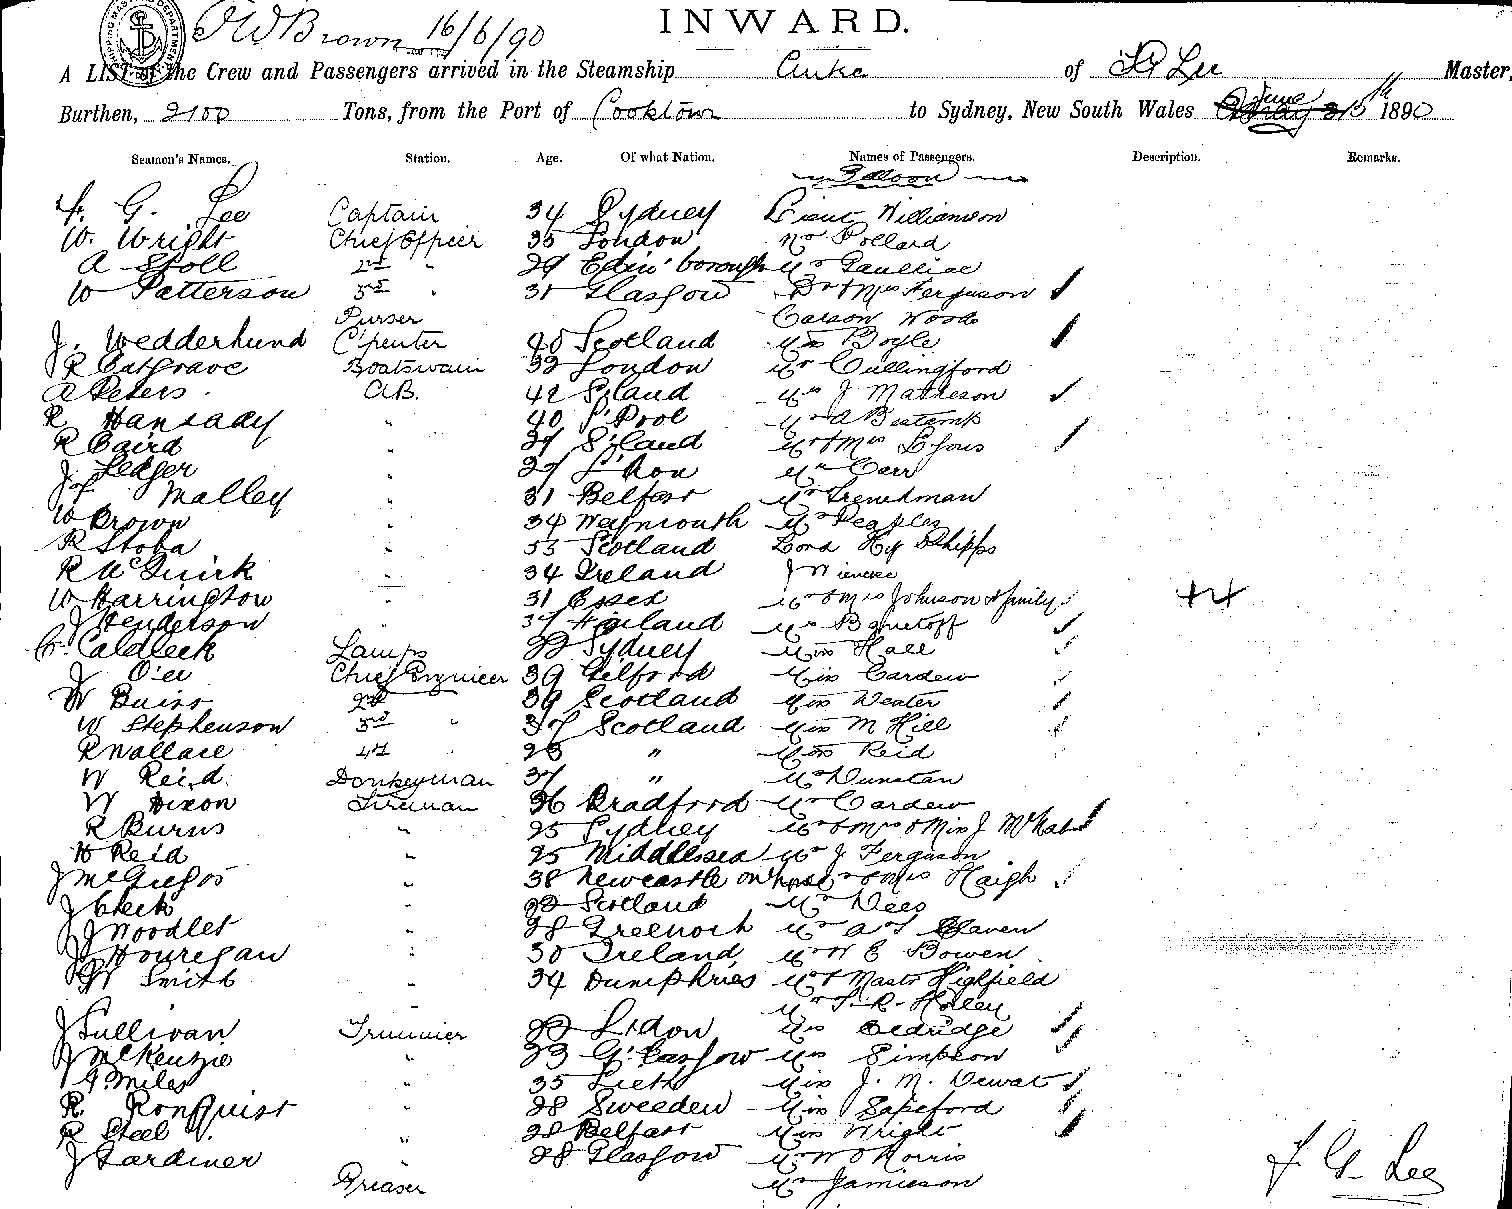 INWARD.
16/6/90
A LIST of the Crew and Passengers arrived in the Steamship of F G Lee Master,
Burthen, 2100 Tons, from the Port of Cooktown to Sydney, New South Wales June 15th 1890
Seamen's Names. Station. Age. Of what Nation. Names of Passengers. Description. Remarks.
Saloon
F. G. Lee Captain 34 Sydney Lieut Williamson
W. Wright Chief Officer 35 London Mr Pollard
A Stoll 2nd " 29 Edin'borough Mr
W Patterson 3rd " 31 Glasgow Dr & Mrs Ferguson
Purser Carson Woods
J. Wedderhund C'penter 40 Scotland Boyle
R Eatgrave Boatswain 32 London Mr Cullingford
A Peters A.B. 42 S'land J Matheson
R Hansady " 40 L'Pool Mr A
R Baird " 27 S'land Mr & Mrs Lyons
J Ledger " 27 Mr Carr
J Malley " 31 Belfast Mr Frenchman
W Brown " 34 Weymouth Mr Peoples
R Stoba " 53 Scotland Lord Hy Phipps
R McQuirk " 34 Ireland J Wienecke
W Harrington " 31 Essex Mr & Mrs Johnson & family
J Henderson " 37
C. Caldleck Lamps 22 Sydney Miss Hall
J O'ei Chief Engineer 39 Gilford Miss Cardew
W Buiss 2nd 39 Scotland Miss Wexter
W Stephenson 3rd " 37 Scotland Miss M Hill
R Wallace 4th " 28 " Miss Reid
W Reid Donkeyman 37 " Mr Dunstan
W Dixon Fireman 26 Bradford Mr Cardew
R Burns " 25 Sydney Mr & Mrs & Miss J McNab
W Reid " 25 Middlesea Mr J Ferguson
J McGregor " 38 Newcastle on Mr & Mrs Haigh
J Cleck " 22 Scotland Mr Dees
J Woodlet " 28 Greenock Mr A T Craven
J Houregan " 30 Ireland Mr W E Bowen
W Smith " 34 Dumphries Mr & Mast Highfield
Mr T. R. Holley
J Sullivan Trimmer 22 L'don Mrs Eldridge
J McKenzie " 23 G'lasgow Mrs Simpson
G Miles " 35 Lieth Miss J. M. Dewat
R. Ronquist " 28 Sweeden Miss Sapsford
R Steel " 28 Belfast Miss Wright
J Gardiner " 28 Glasgow Mr W O Morris
Greaser Mr Jamieson
F. G. Lee